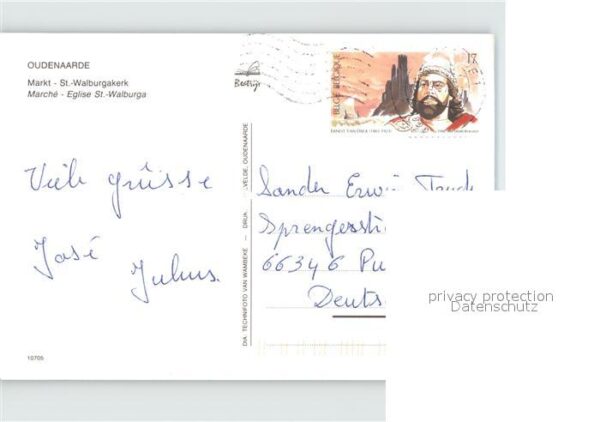 OUDENAARDE
Markt - St.-Walburgakerk
Marché - Eglise St.-Walburga
17
BELGIE-BELGIQUE
Viele grüsse
José
Julius
Sander Erwin
66346 Pu
Deuts
DIA - TECHNIFOTO VAN WAMBEKE — DRUK.
VELDE, OUDENAARDE
10705
privacy protection
Datenschutz